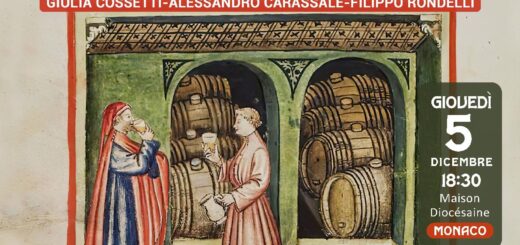 GIULIA COSSETTI-ALESSANDRO CARASSALE-FILIPPO RONDELLI
GIOVEDÌ
5
DICEMBRE
18:30
Maison
Diocésaine
MONACO